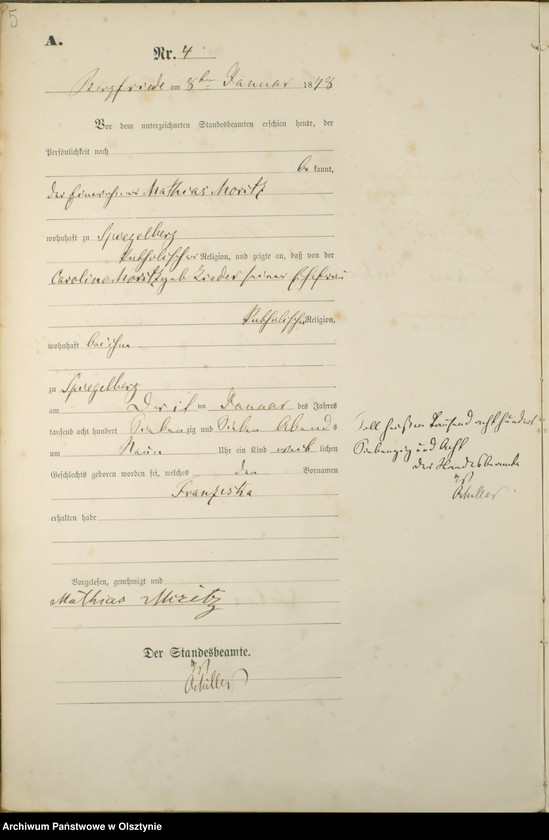 5
A.
Nr. 4
Bergfriede am 8ten Januar 1878
Vor dem unterzeichneten Standesbeamten erschien heute, der
Persönlichkeit nach
be kannt,
der Einwohner Mathias Moritz
wohnhaft zu Spiegelberg
katholischer Religion, und zeigte an, daß von der
Carolina Moritz geb. seiner Ehefrau
katholischer Religion,
wohnhaft bei ihm
zu Spiegelberg
am Januar des Jahres
tausend acht hundert Sieben zig und Sieben Abends
um Neun Uhr ein Kind weib lichen
Geschlechts geboren worden sei, welches den Vornamen
Franziska
erhalten habe
Vorgelesen, genehmigt und
Mathias Moritz
Der Standesbeamte.
Schiller
Soll heißen Tausend acht hundert
Siebenzig und Acht
Der Standesbeamte
Schiller
Archiwum Państwowe w Olsztynie